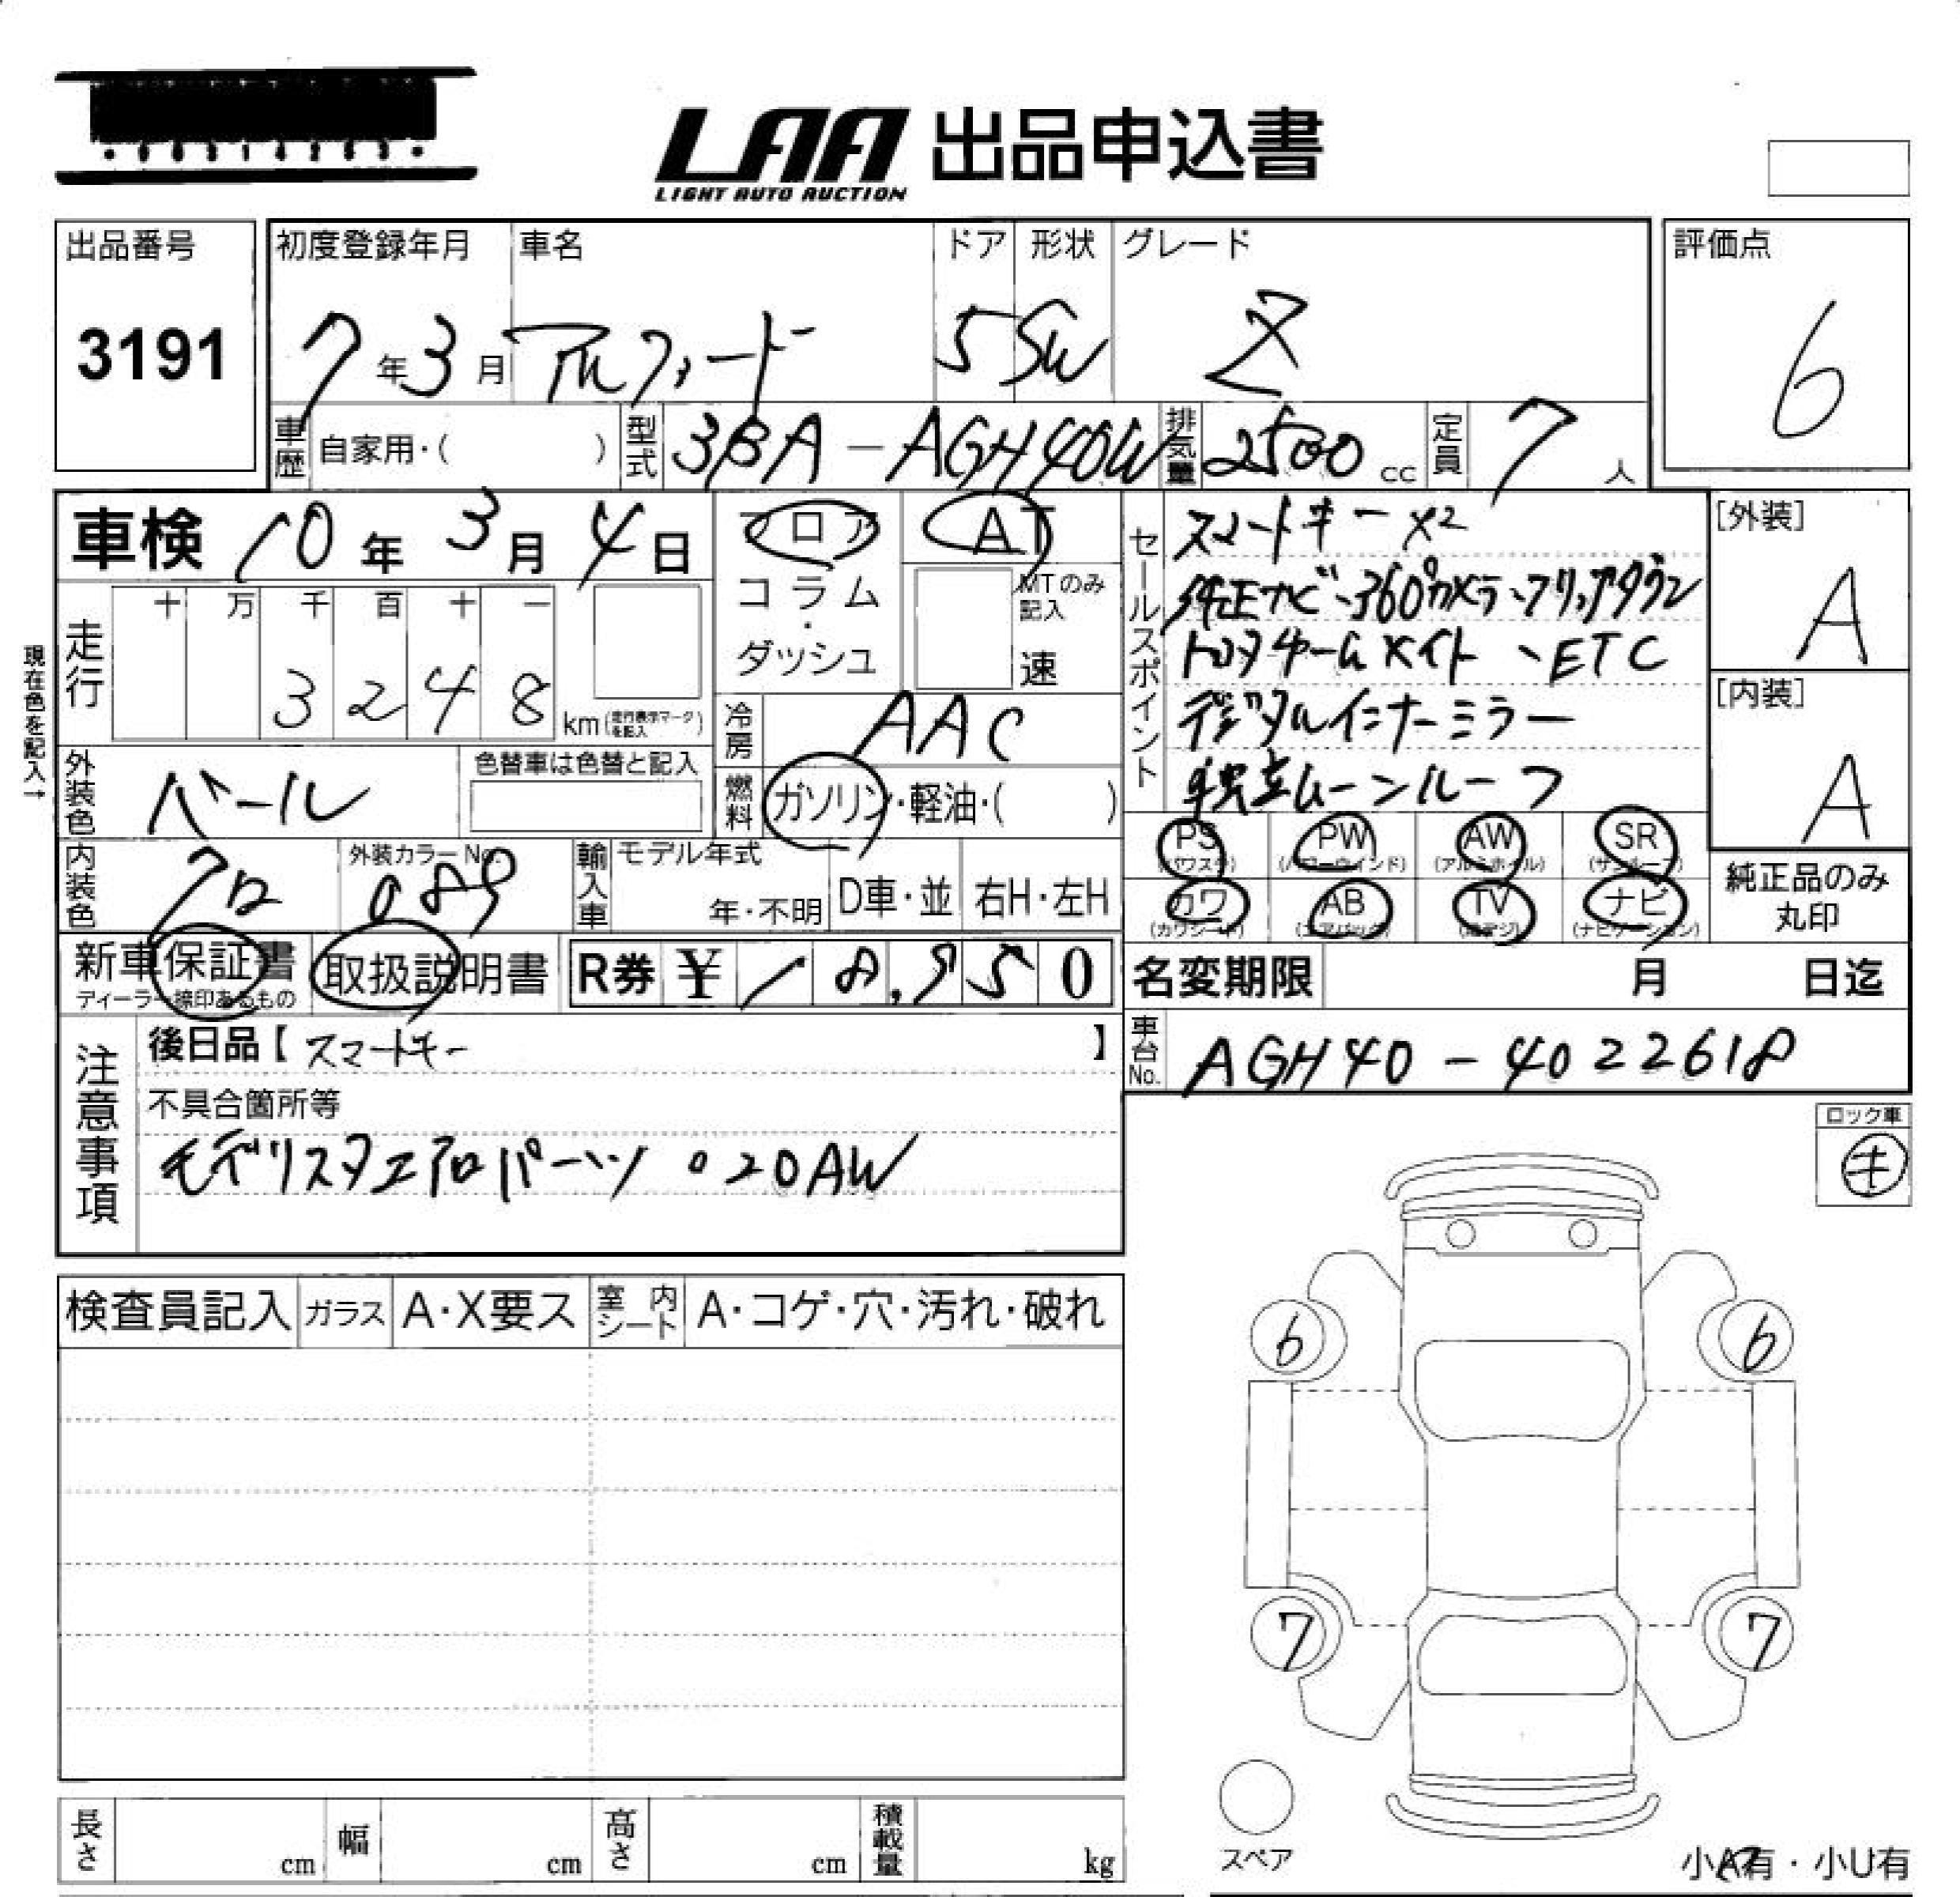 LAA 出品申込書
LIGHT AUTO AUCTION
出品番号
3191
初度登録年月 車名 ドア 形状 グレード
7年3月 アルファード 5 SW Z
評価点
6
車歴 自家用・( ) 型式 3BA-AGH40W 排気量 2500cc 定員 7人
車検 10年3月4日
フロア
コラム
・
ダッシュ
AT
MTのみ記入
速
セールスポイント
スマートキー×2
純正ナビ、360°カメラ、フリップダウン
トヨタチームメイト、ETC
デジタルインナーミラー
独立ムーンルーフ
[外装]
A
[内装]
A
現在色を記入→
走行
十 万 千 百 十 一
3 2 4 8 km(走行表示マークを記入)
冷房 AAC
燃料 ガソリン・軽油・( )
外装色 パール 色替車は色替と記入
内装色 クロ 外装カラーNo. 089
輸入車 モデル年式 年・不明 D車・並 右H・左H
PS (パワステ) PW (パワーウインド) AW (アルミホイル) SR (サンルーフ)
カワ (カワシート) AB (エアバック) TV (地デジ) ナビ (ナビゲーション)
純正品のみ
丸印
新車保証書
ディーラー捺印あるもの
取扱説明書
R券 ¥18,950
名変期限 月 日迄
車台No. AGH40-4022618
注意事項
後日品【スマートキー】
不具合箇所等
モデリスタエアロパーツ。20AW
ロック車
キ
検査員記入 ガラス A・X要ス 室内シート A・コゲ・穴・汚れ・破れ
6 6
7 7
スペア
長さ cm 幅 cm 高さ cm 積載量 kg
小A有・小U有